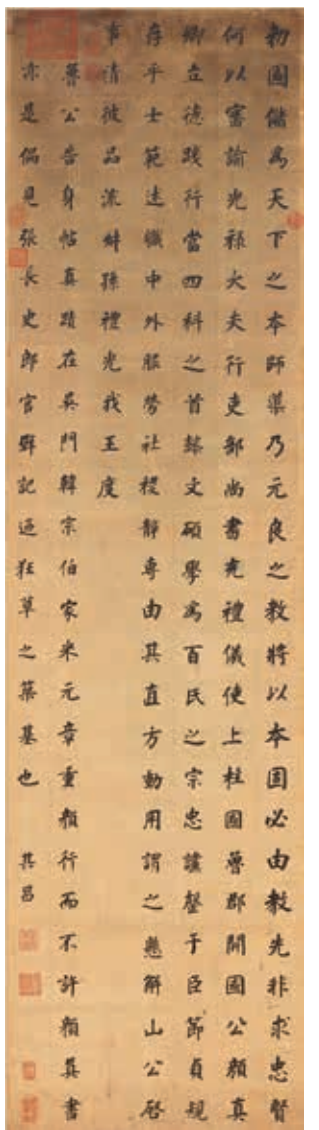 勑國儲為天下之本師導乃元良之教將以本固必由教先非求忠賢
何以審諭光祿大夫行吏部尚書充禮儀使上柱國魯郡開國公顏真
卿立德踐行當四科之首懿文碩學為百氏之宗忠讜罄于臣節貞規
存乎士範述職中外服勞社稷靜專由其直方動用謂之懸解山公啓
事清彼品流叔孫禮光我王度
魯公告身帖真蹟在吳門韓宗伯家米元章重顏行而不許顏真書
亦是偏見張長史郎官壁記迺狂草之築基也 其昌